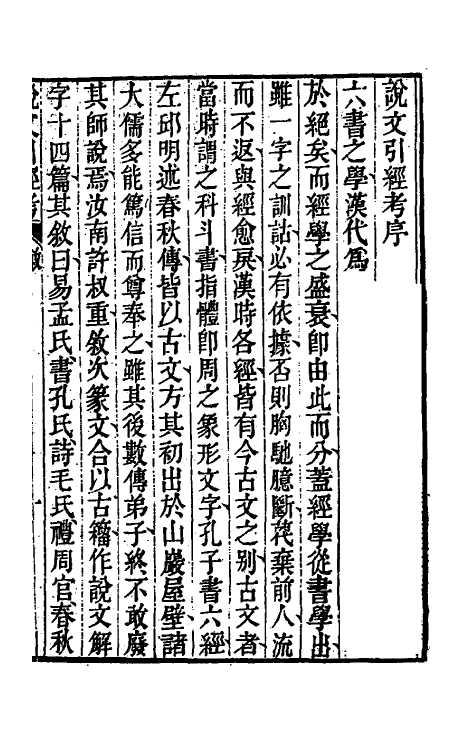 說文引經考序
六書之學漢代爲
於絕矣而經學之盛衰卽由此而分蓋經學從書學出
雖一字之訓詁必有依據否則胸馳臆斷茷棄前人流
而不返與經愈戾漢時各經皆有今古文之別古文者
當時謂之科斗書指體卽周之象形文字孔子書六經
左邱明述春秋傳皆以古文方其初出於山巖屋壁諸
大儒多能篤信而尊奉之雖其後數傳弟子終不敢廢
其師說焉汝南許叔重敘次篆文合以古籀作說文解
字十四篇其敘曰易孟氏書孔氏詩毛氏禮周官春秋
說文引經考 一